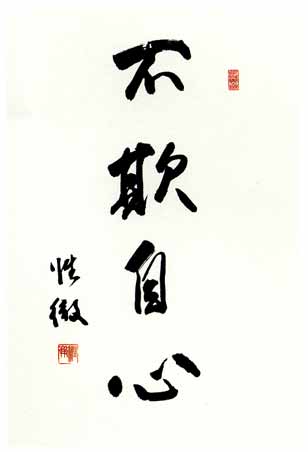 不欺自心
性徵